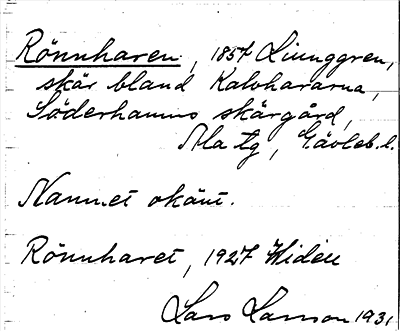 Rönnharen, 1857 Ljunggren,
skär bland Kalvhararna,
Söderhamns skärgård,
Ala tg, Gävleb.l.
Namnet okänt.
Rönnharet, 1927 Widéu
Lars Larsson 1931